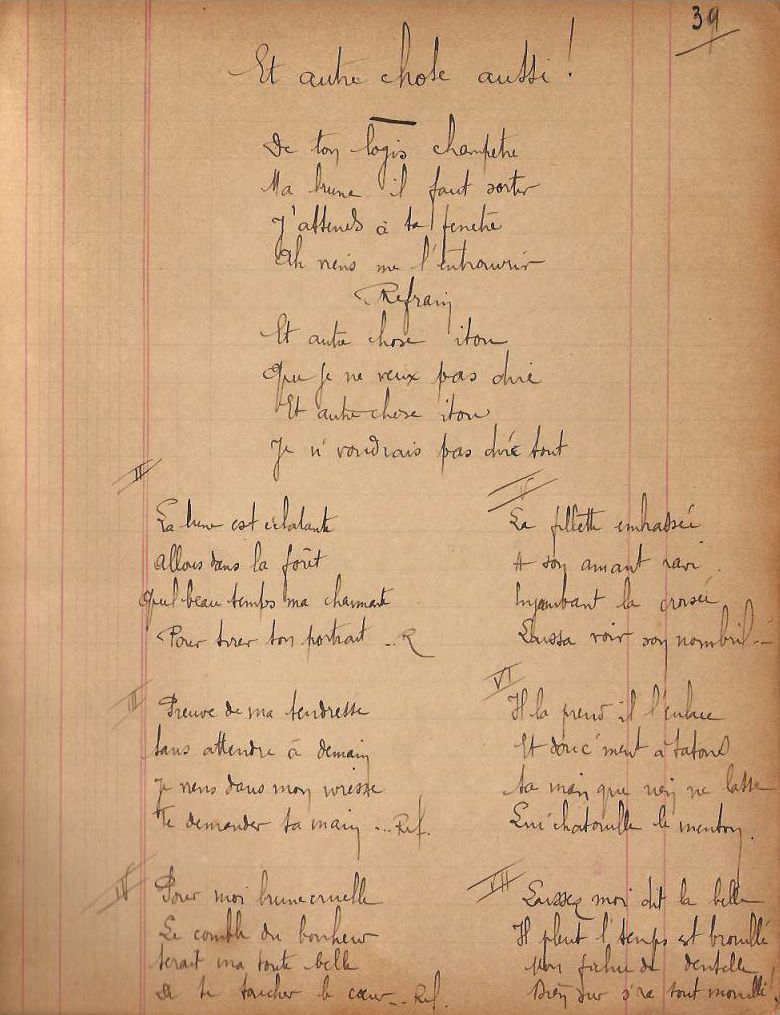 39
Et autre chose aussi !
De ton logis champetre
Ma brune il faut sortir
J'attends à ta fenetre
Ah viens me l'entrouvrir
Refrain
Et autre chose itou
Que je ne veux pas dire
Et autre chose itou
Je n'voudrais pas dire tout
II
La lune est éclatante
Allons dans la forêt
Quel beau temps ma charmante
Pour tirer ton portrait ... R
III
Preuve de ma tendresse
Sans attendre à demain
Je viens dans mon ivresse
Te demander ta main ... Ref.
IV
Pour moi brune cruelle
Le comble du bonheur
Serait ma toute belle
De te toucher le cœur ... Ref.
V
La fillette embrassée
A son amant ravi
Enjambant la croisée
Laissa voir son nombril ...
VI
Il la prend il l'enlace
Et douc'ment à tatons
Sa main que rien ne lasse
Lui chatouille le menton.
VII
Laissez moi dit la belle
Il pleut l'temps est brouillé
Mon fichu de dentelle
Bien sur s'ra tout mouillé !